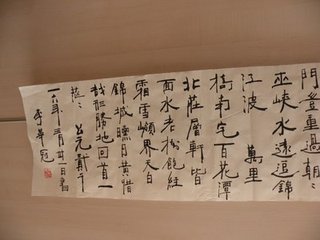 門豈重過朝〻
巫峽水遠逗錦
江波 萬里
橋南宅百花潭
北莊層軒皆
面水老樹飽經
霜雪嶺界天白
錦城曛日黃惜
哉形勝地回首一
茫〻 公元貳千
一六年 月廿一日書
李